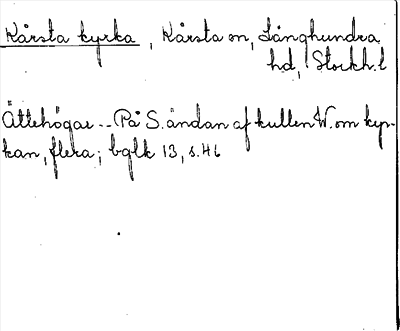 Kårsta kyrka, Kårsta sn, Långhundra
hd, Stockh.l
Ättehögar -- På S. ändan af kullen W. om kyr-
kan, flera; bglk 13, s.46